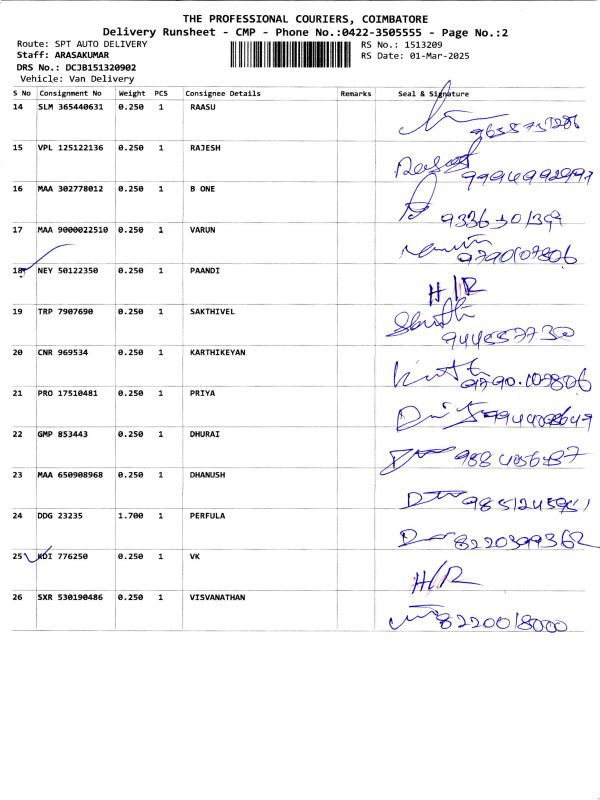 THE PROFESSIONAL COURIERS, COIMBATORE
Delivery Runsheet - CMP - Phone No.:0422-3505555 - Page No.:2
Route: SPT AUTO DELIVERY RS No.: 1513209
Staff: ARASAKUMAR RS Date: 01-Mar-2025
DRS No.: DCJB151320902
Vehicle: Van Delivery
S No Consignment No Weight PCS Consignee Details Remarks Seal & Signature
14 SLM 365440631 0.250 1 RAASU
15 VPL 125122136 0.250 1 RAJESH
16 MAA 302778012 0.250 1 B ONE
17 MAA 9000022510 0.250 1 VARUN
9790107806
18 NEY 50122350 0.250 1 PAANDI
H/R
19 TRP 7907690 0.250 1 SAKTHIVEL
20 CNR 969534 0.250 1 KARTHIKEYAN
9790.107806
21 PRO 17510481 0.250 1 PRIYA
22 GMP 853443 0.250 1 DHURAI
23 MAA 650908968 0.250 1 DHANUSH
24 DDG 23235 1.700 1 PERFULA
8220399362
25 KDI 776250 0.250 1 VK
H/R
26 SXR 530190486 0.250 1 VISVANATHAN
8220018000